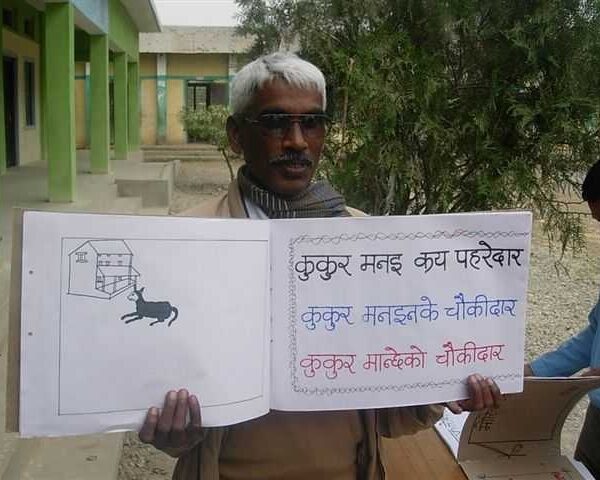 कुकुर मनइ कय पहरेदार
कुकुर मनइनके चौकीदार
कुकुर मान्छेको चौकीदार